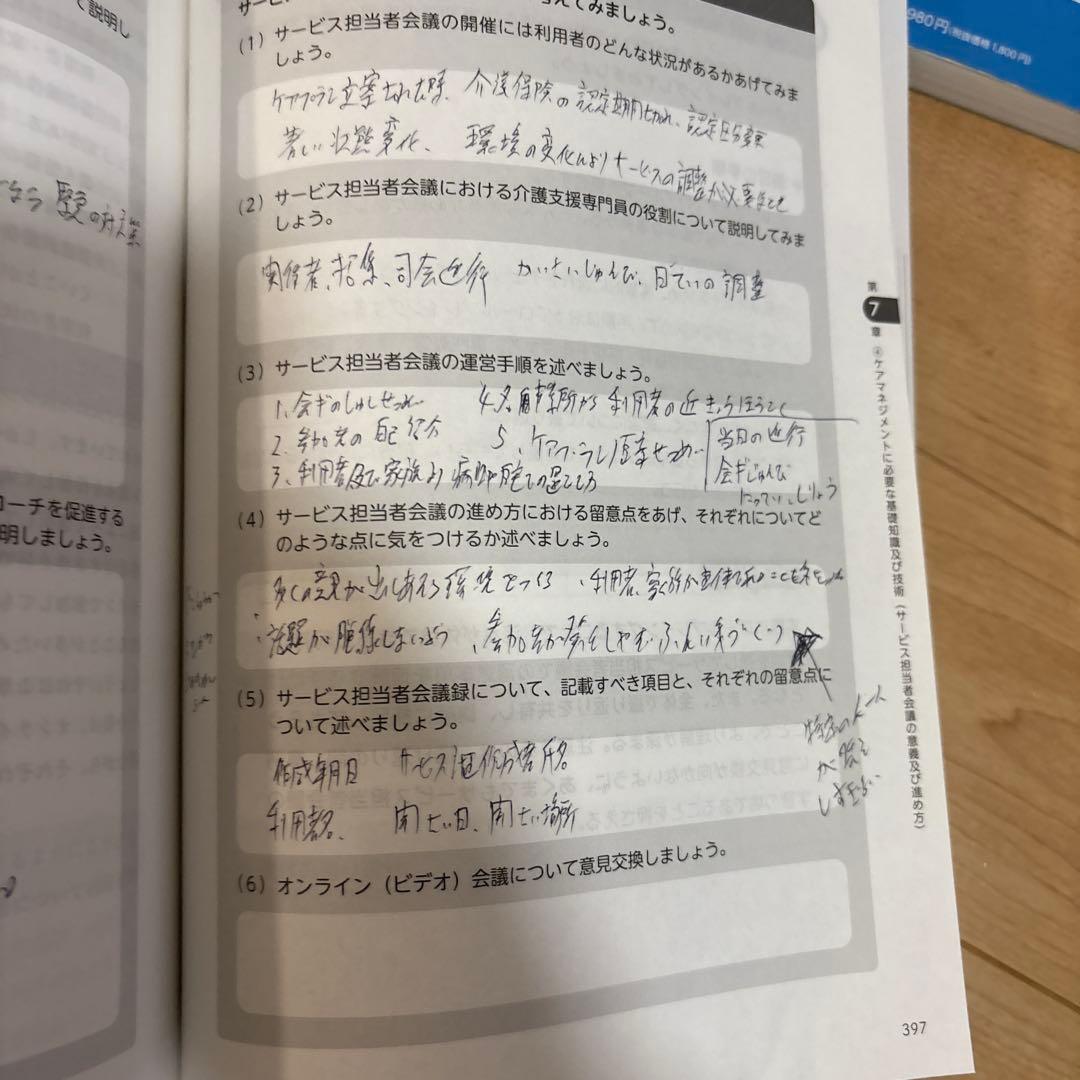 て説明し
ローチを促進する
明しましょう。
の対策
980円(税抜価格1,800円)
えてみましょう。
(1) サービス担当者会議の開催には利用者のどんな状況があるかあげてみま
しょう。
ケアプラン立案された時、介護保険の認定期間切れ、認定区分変更
著しい状態変化、環境の変化によりサービスの調整が必要なとき
(2) サービス担当者会議における介護支援専門員の役割について説明してみま
しょう。
実行者、招集、司会進行 かいさいじゅんび、日ていの調整
(3) サービス担当者会議の運営手順を述べましょう。
1、会ぎのしゅしせつめい
2、参加者の自己紹介
3、利用者及び家族より
4、各事業所から利用者の近きょうほうこく
5、ケアプラン原案せつめい
当日の進行
会ぎじゅんび
(4) サービス担当者会議の進め方における留意点をあげ、それぞれについてど
のような点に気をつけるか述べましょう。
多くの意見が出しあえる環境をつくる、利用者、家族が主体
話題が脱線しないよう、参加者が発言しやすいふんい気づくり
(5) サービス担当者会議録について、記載すべき項目と、それぞれの留意点に
ついて述べましょう。
作成年月日 サービス 作成者氏名
利用者名、 開さい日、開さい場所
特定の人
が
(6) オンライン(ビデオ)会議について意見交換しましょう。
第7章 ④ケアマネジメントに必要な基礎知識及び技術(サービス担当者会議の意義及び進め方)
397